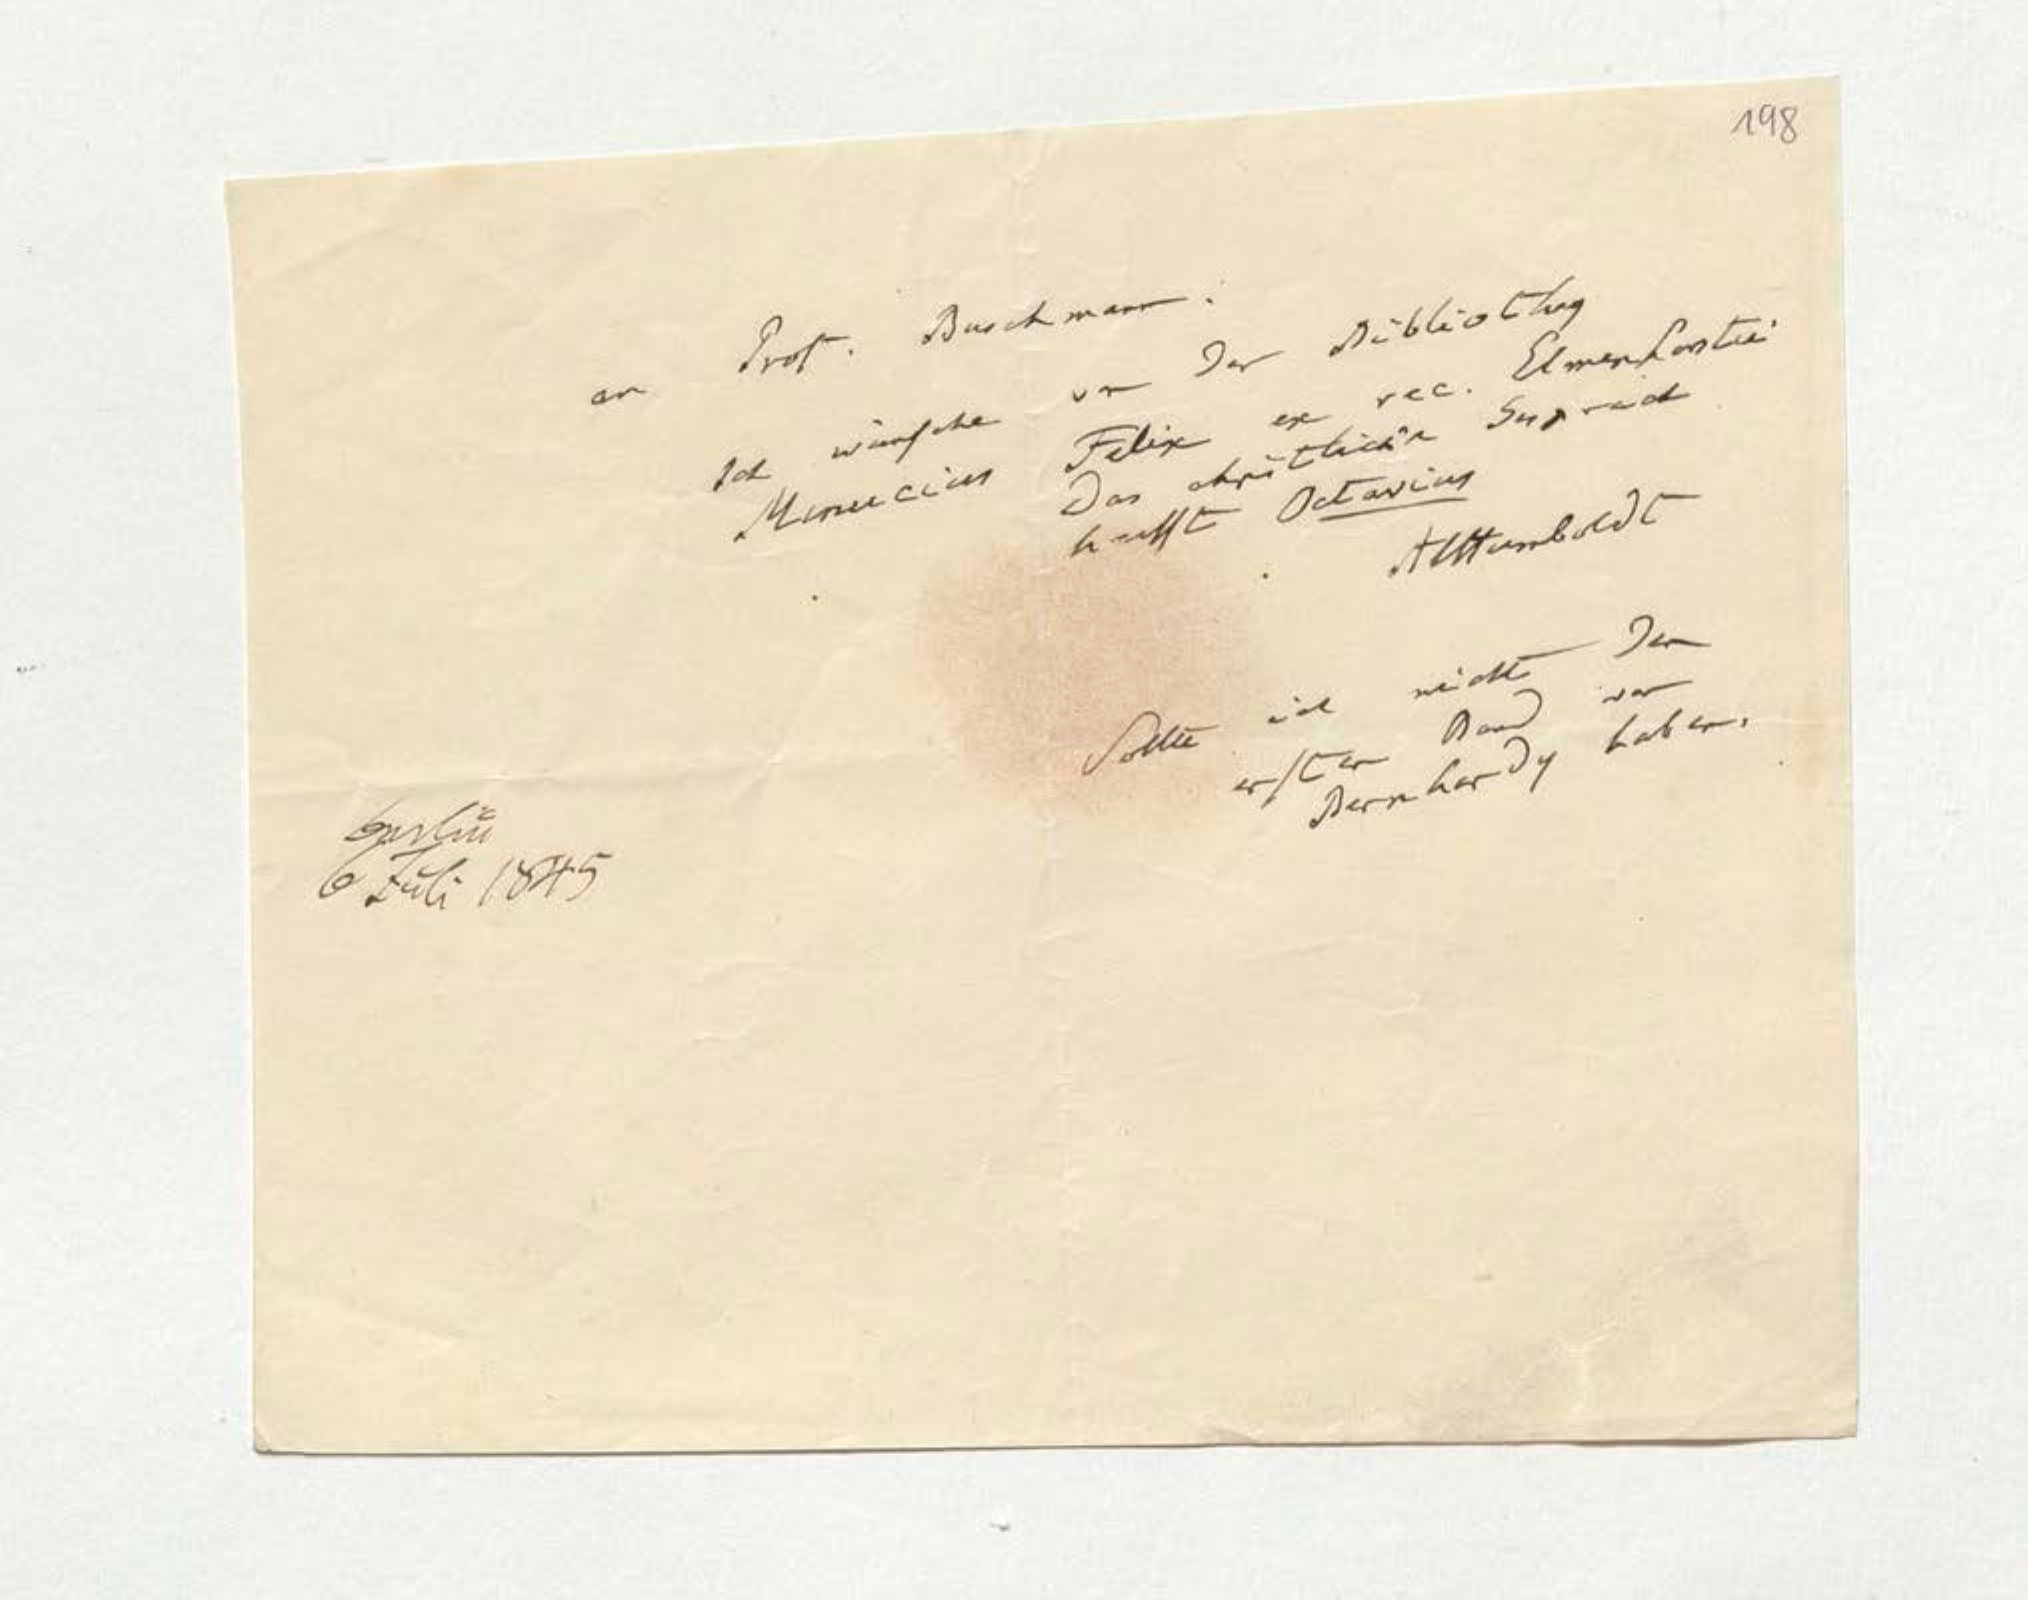 198
an Prof. Buschmann:
Ich wünsche von der Bibliotheq
Minucius Felix ex rec. Elmenhorstii
Das christliche Gespräch
heisst Octavius
AlHumboldt
Sollte ich nicht den
ersten Band von
Bernhardy haben.
Berlin
6 Juli 1845